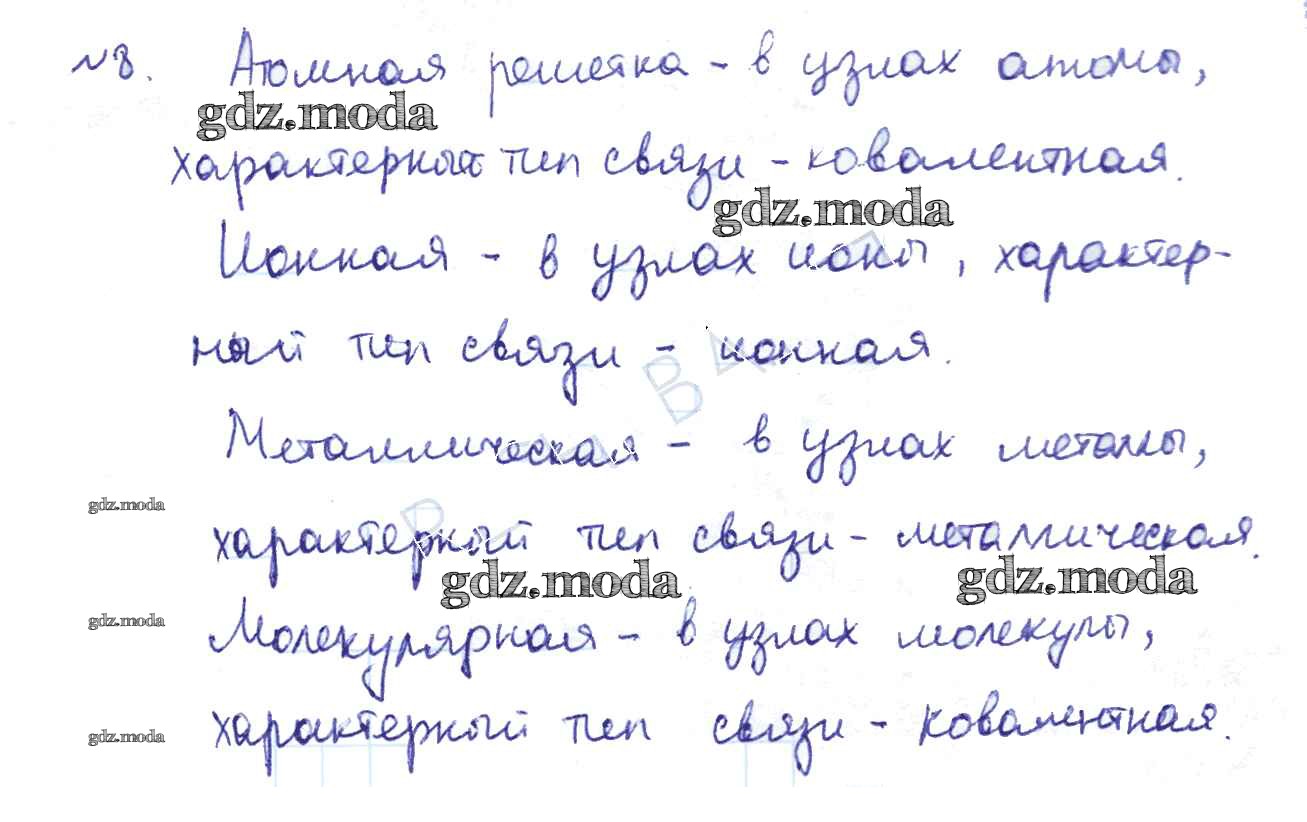 №8. Атомная решетка - в узлах атомы,
gdz.moda
характерный тип связи - ковалентная.
gdz.moda
Ионная - в узлах ионы, характер-
ный тип связи - ионная.
Металлическая - в узлах металлы,
gdz.moda
характерный тип связи - металлическая.
gdz.moda gdz.moda
gdz.moda
Молекулярная - в узлах молекулы,
характерный тип связи - ковалентная.
gdz.moda